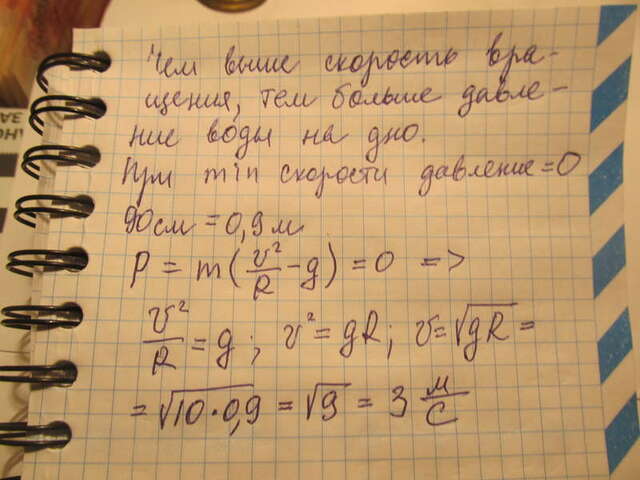 Чем выше скорость вра-
щения, тем больше давле-
ние воды на дно.
При min скорости давление = 0
90см = 0,9 м
P = m(v²/R - g) = 0 =>
v²/R = g; v² = gR; v = √gR =
= √10·0,9 = √9 = 3 м/с